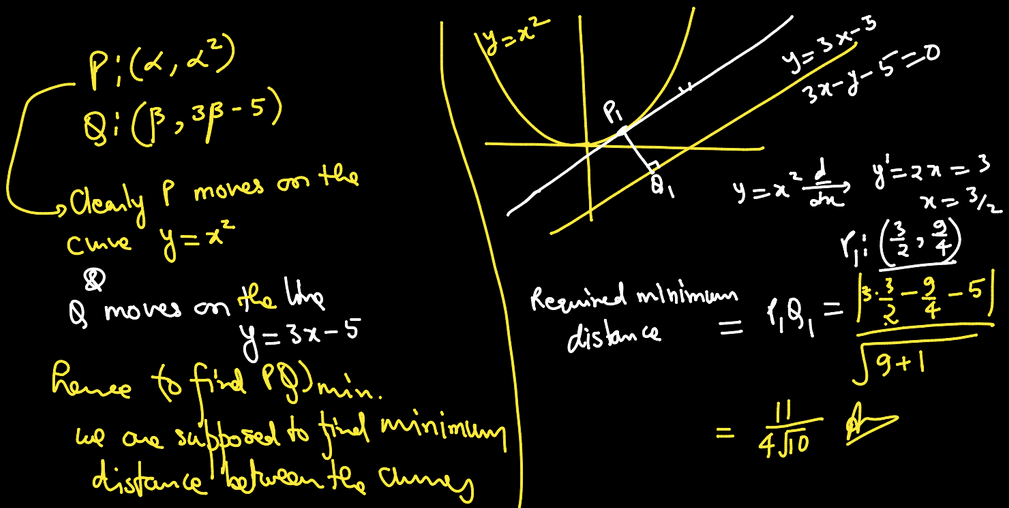 P: (α, α²)
Q: (β, 3β-5)
Clearly P moves on the
curve y = x²
&
Q moves on the line
y = 3x-5
hence to find PQ)min.
we are supposed to find minimum
distance between the curves
y = x²
y = 3x-3
3x-y-5=0
P₁
Q₁
y = x² d/dx → y' = 2x = 3
x = 3/2
P₁: (3/2, 9/4)
Required minimum
distance = P₁Q₁ = |3·3/2 - 9/4 - 5| / √9+1
= 11/4√10